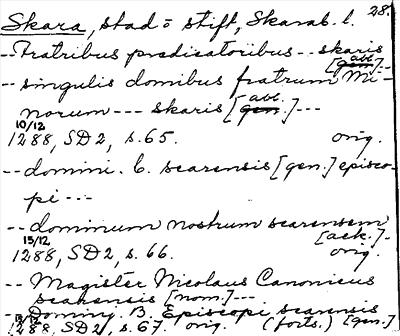 Skara, stad o stift, Skarab. l. 28.
-- Fratribus predicatoribus -- skaris
[gen. abl.] --
-- singulis domibus fratrum Mi-
norum --- skaris [gen. abl.] ---
10/12
1288, SD2, s. 65. orig.
-- domini. C. scarensis [gen.] episco-
pi ---
-- dominum nostrum scarensem
[ack.] -
13/12
1288, SD2, s. 66. orig.
-- Magister Nicolaus Canonicus
scarensis [nom.] ---
-- Dominj. B. Episcopi scarensis
1288, SD2, s. 67. orig. (forts.) [gen.]